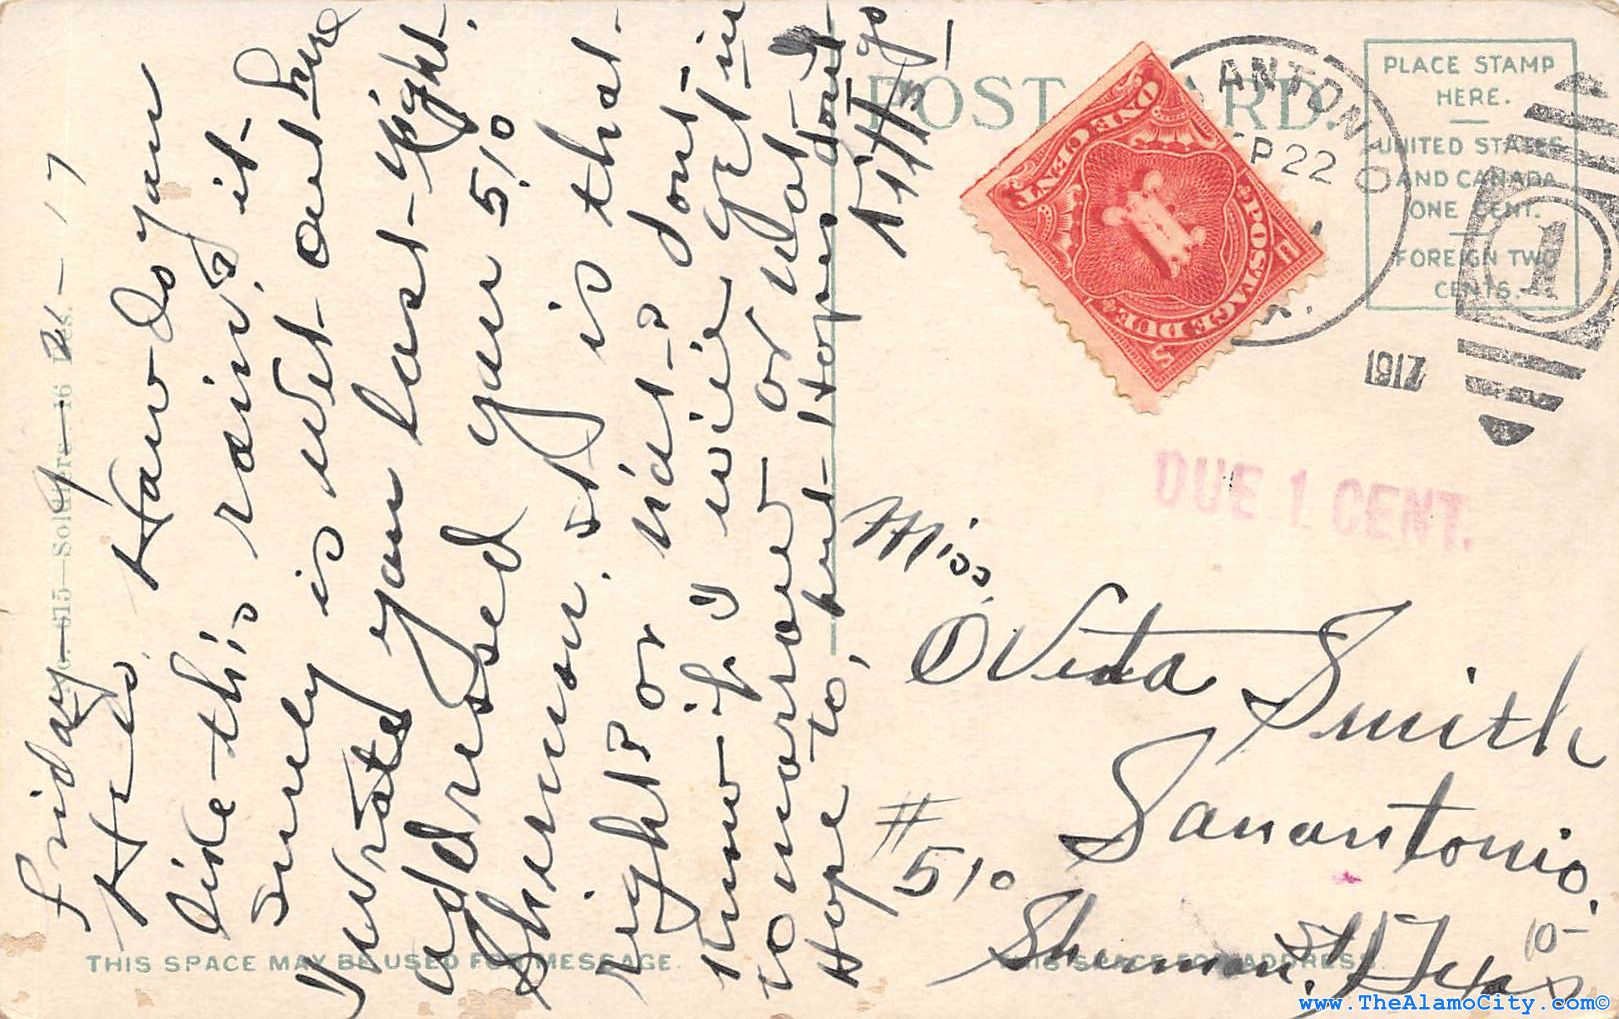 Friday P.M. 21 - 17
Hello. How do you
like this rain? it
surely is wet out here
I wrote you last night.
addressed your 510
Sherman. St is that
right? or not? don't
know if I will get in
tomorrow or not
Hope to, but Hopes don't
go
POST CARD.
PLACE STAMP
HERE.
UNITED STATES
AND CANADA
ONE CENT.
FOREIGN TWO
CENTS.
ANTONIO
P 22
1917
1
ONE CENT
POSTAGE DUE
U S
DUE 1 CENT.
Miss
OVeta Smith
Sanantonio.
# 510
Sherman. St Texas
10-
615—Soldiers—16 Des.
THIS SPACE MAY BE USED FOR MESSAGE
THIS SPACE FOR ADDRESS
www.TheAlamoCity.com©